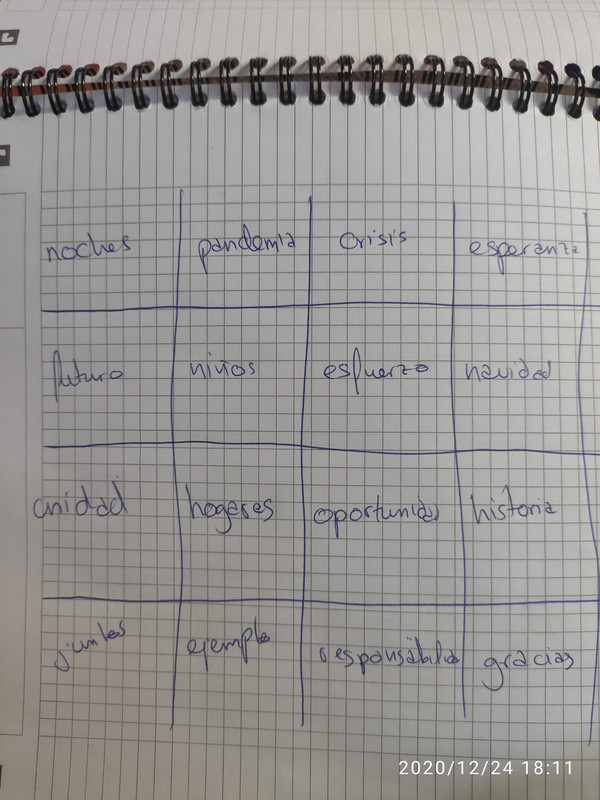 noches pandemia crisis esperanza
futuro niños esfuerzo navidad
unidad hogares oportunid historia
juntos ejemplo responsabilid gracias
2020/12/24 18:11